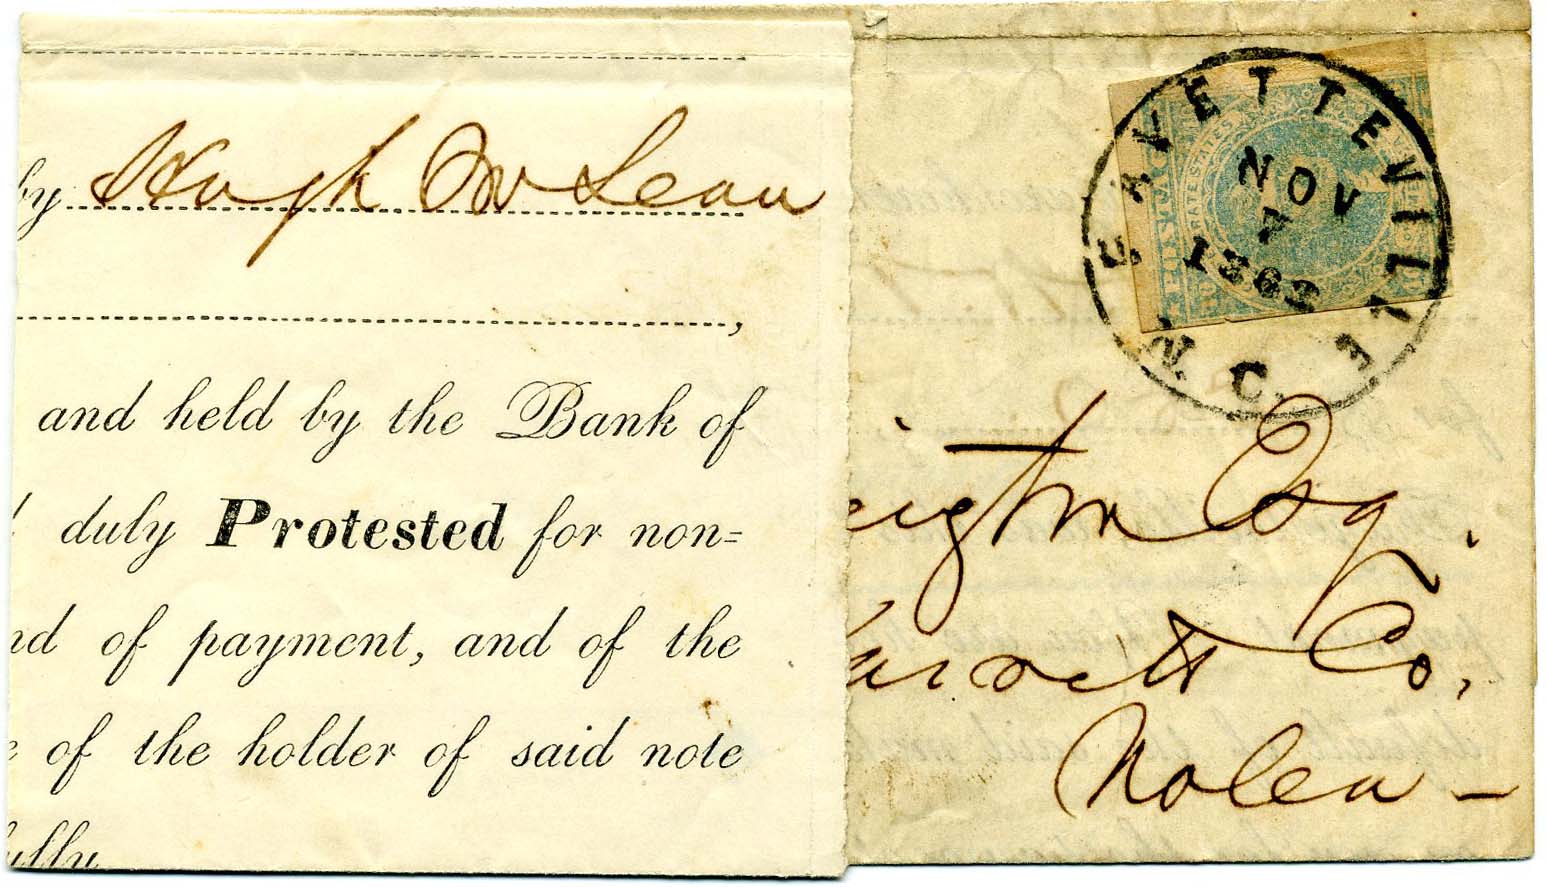 by Hugh McLean
and held by the Bank of
duly Protested for non=
of payment, and of the
of the holder of said note
FAYETTEVILLE
N.C.
NOV
7
1862
POSTAG
RATE STATES
Esq.
Co,
Nolea –